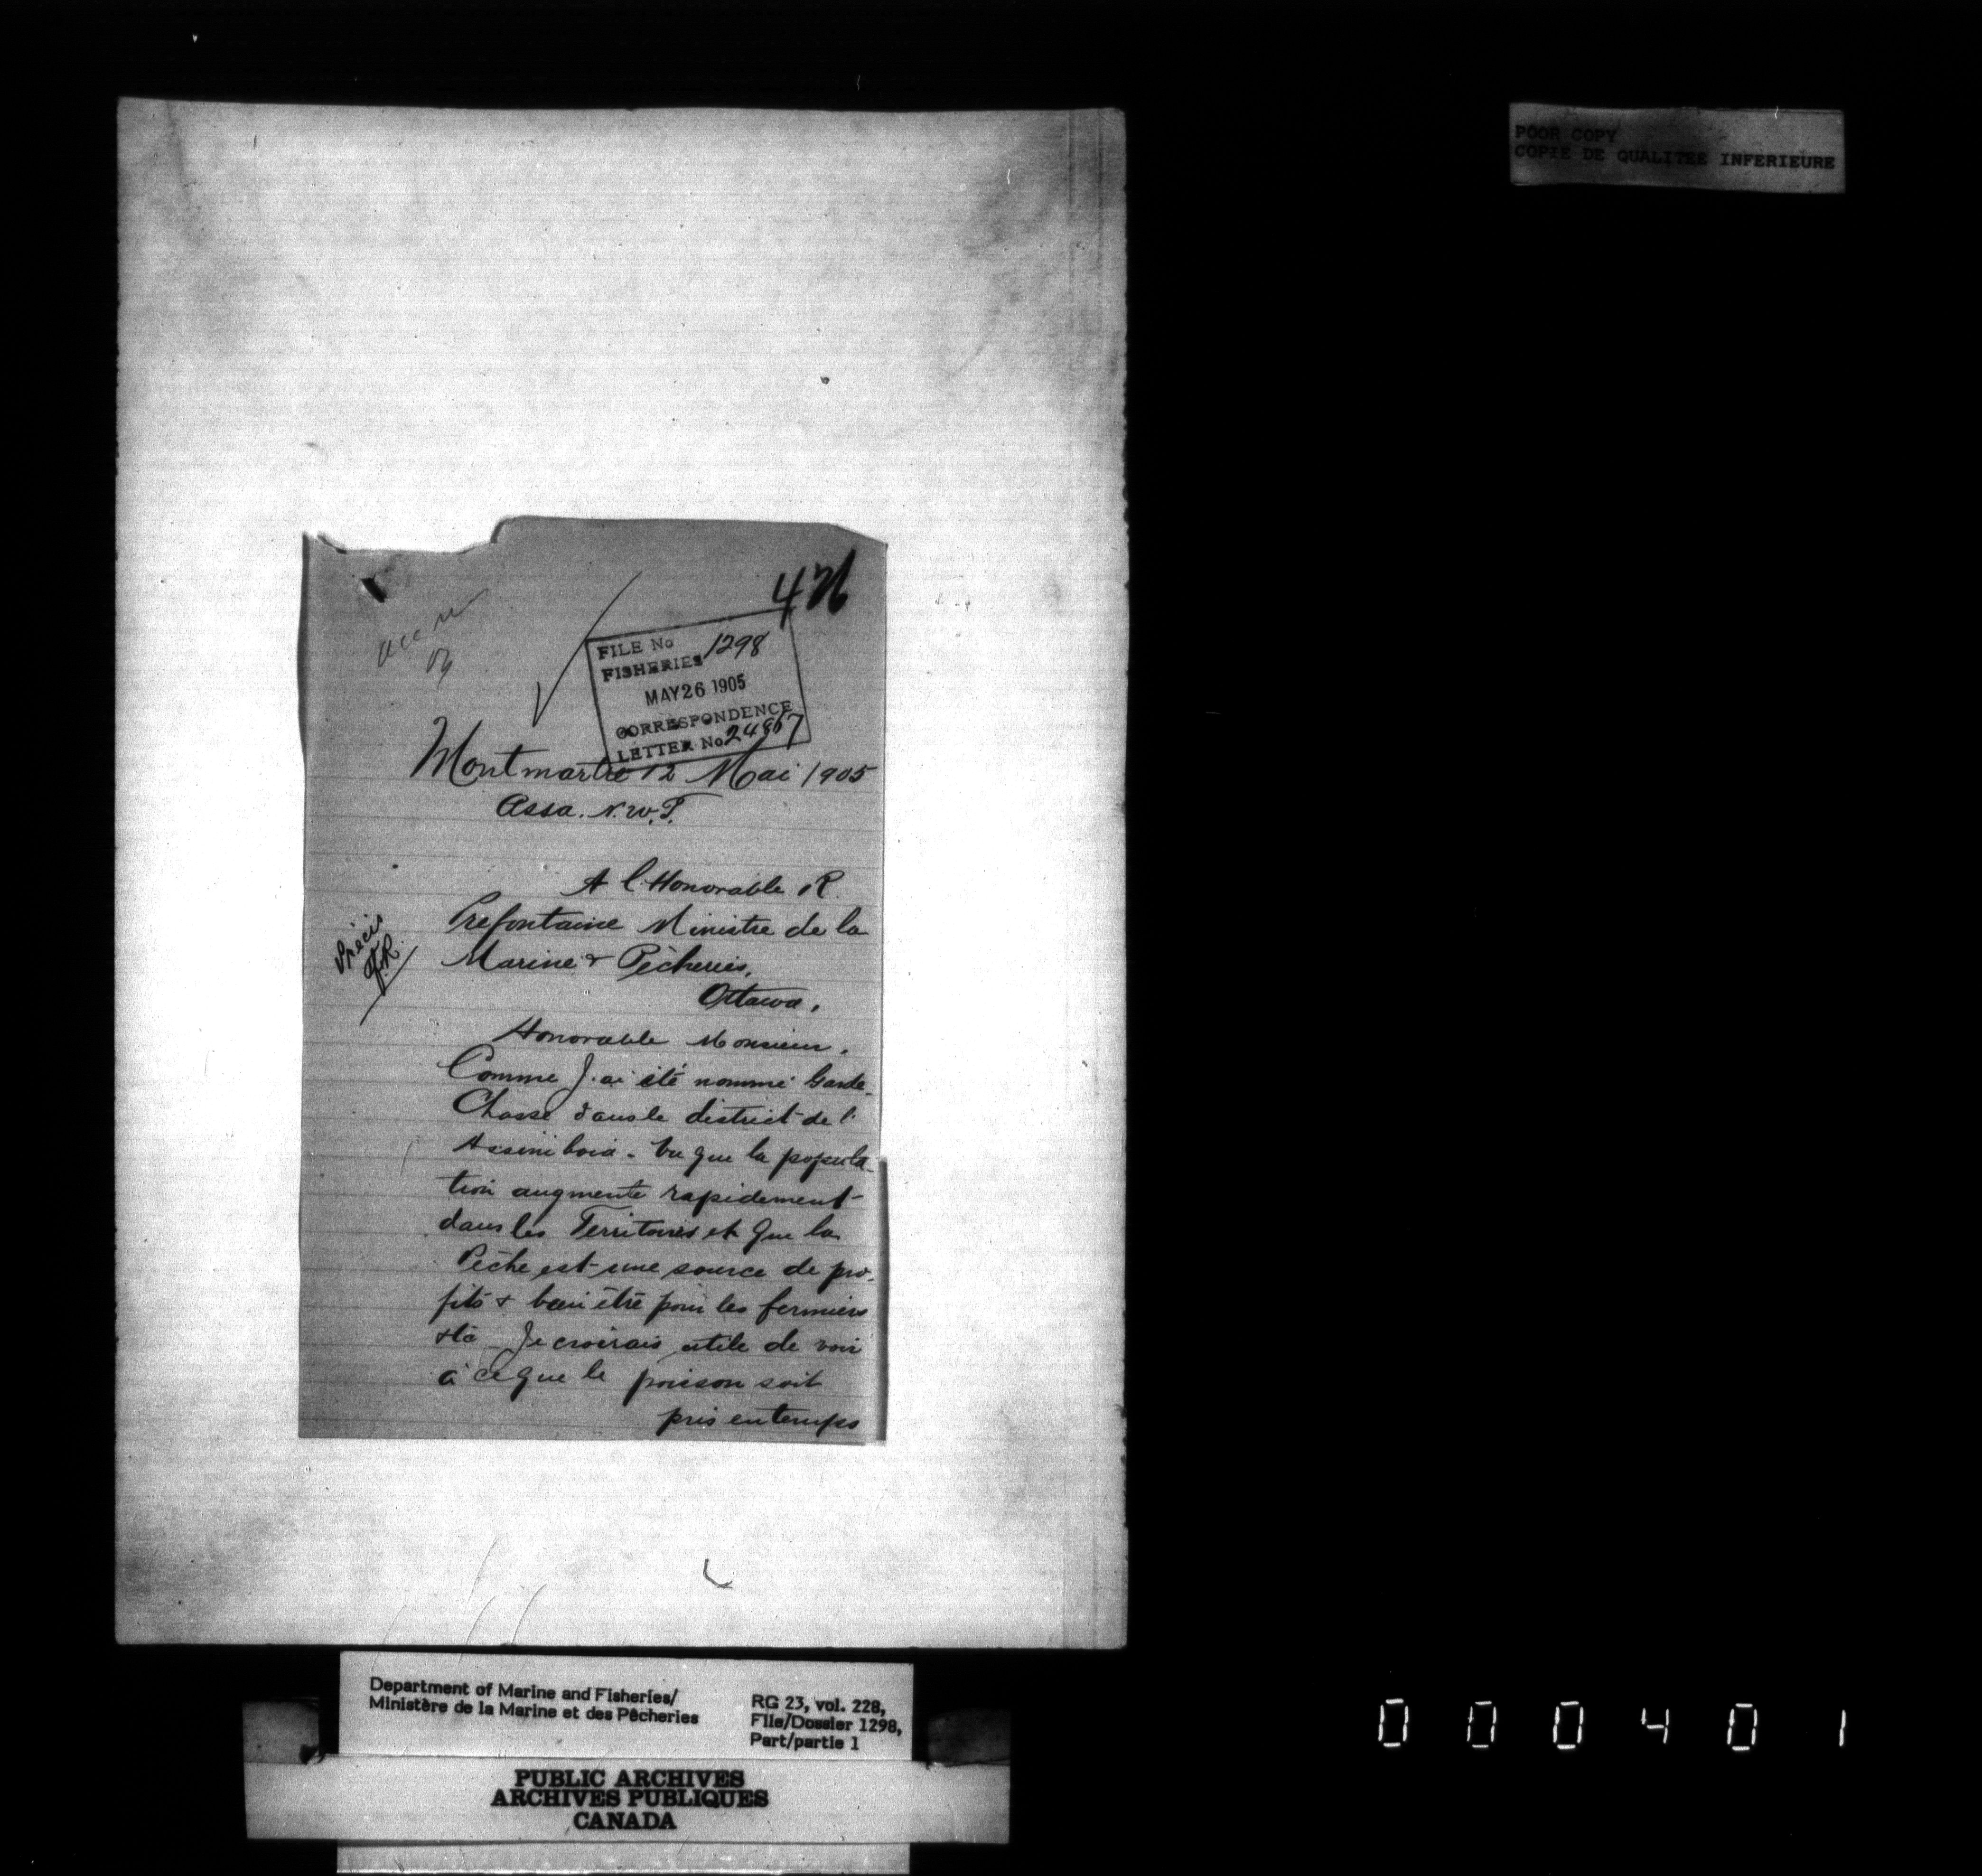 POOR COPY
COPIE DE QUALITEE INFERIEURE
FILE No 1298
FISHERIES
MAY 26 1905
CORRESPONDENCE
LETTER No 24867
Montmartre 12 Mai 1905
Assa. N.W.T.
A l'Honorable R.
Prefontaine Ministre de la
Marine & Pêcheries,
Ottawa,
Précis
Honorable Monsieur,
Comme J'ai été nommé Garde-
Chasse dans le district de l'
Assiniboia - Vu que la popula-
tion augmente rapidement
dans les Territoires et que la
Pêche est une source de pro-
fits & bien être pour les fermiers
&tc Je croirais utile de voir
à ce que le poisson soit
pris en temps
Department of Marine and Fisheries/
Ministère de la Marine et des Pêcheries
RG 23, vol. 228,
File/Dossier 1298,
Part/partie 1
PUBLIC ARCHIVES
ARCHIVES PUBLIQUES
CANADA
000401